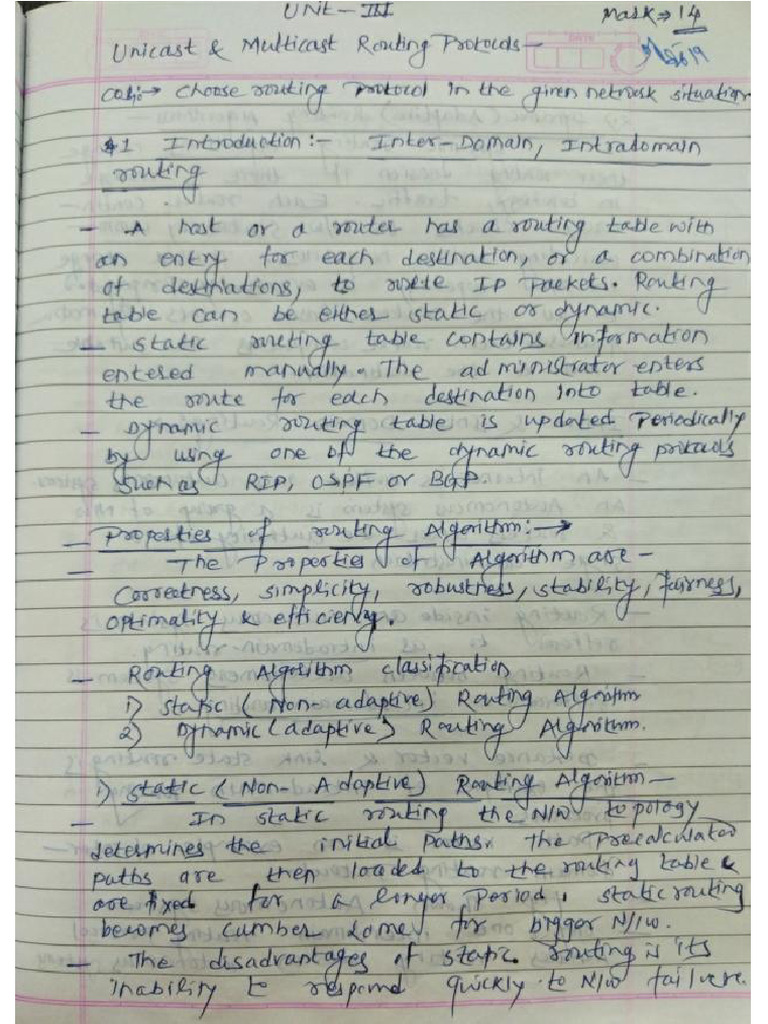 UNIT-III
Mask⇒14
Unicast & Multicast Routing Protocols-
→ Choose routing protocol in the given network situation
1 Introduction:- Inter-Domain, Intradomain
routing
- A host or a router has a routing table with
an entry for each destination, or a combination
of destinations, to route IP Packets. Routing
table can be either static or dynamic.
- static routing table contains information
entered manually. The administrator enters
the route for each destination into table.
- Dynamic routing table is updated Periodically
by using one of the dynamic routing protocols
such as RIP, OSPF or BGP
- Properties of routing Algorithm:→
- The Properties of Algorithm are -
Correctness, simplicity, robustness, stability, fairness,
optimality & efficiency.
- Routing Algorithm classification
1) static (Non-adaptive) Routing Algorithm
2) Dynamic (adaptive) Routing Algorithm.
1) static (Non-Adaptive) Routing Algorithm -
- In static routing the N/w topology
determines the initial paths. the Precalculated
paths are then loaded to the routing table &
are fixed for a longer Period. static routing
becomes cumber some for bigger N/w.
- The disadvantages of static routing is its
inability to respond quickly to N/w failure.